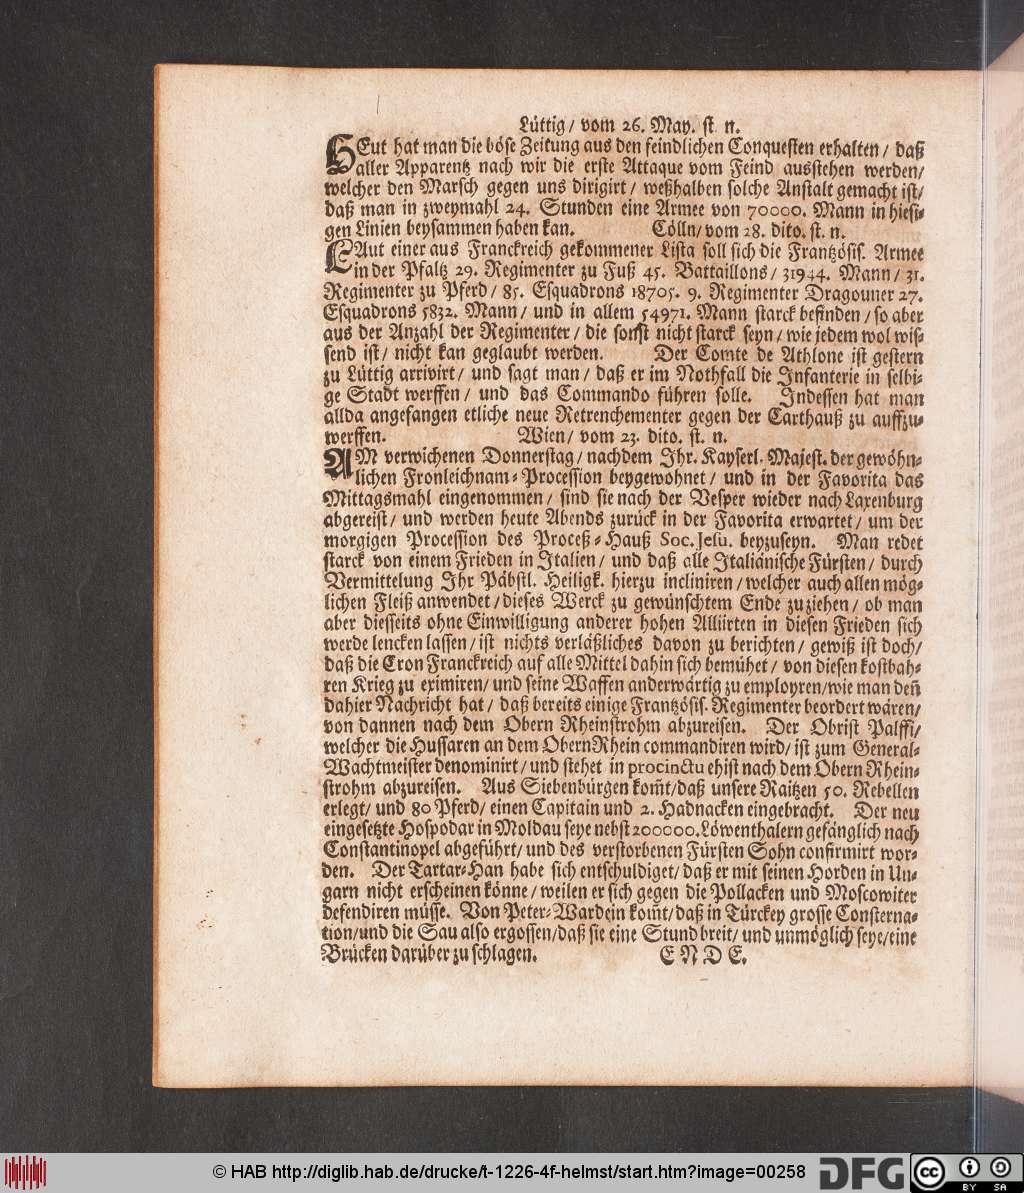 Lüttig/ vom 26. May. st. n.
HEut hat man die böse Zeitung aus den feindlichen Conquesten erhalten/ daß
aller Apparentz nach wir die erste Attaque vom Feind ausstehen werden/
welcher den Marsch gegen uns dirigirt/ weßhalben solche Anstalt gemacht ist/
daß man in zweymahl 24. Stunden eine Armee von 70000. Mann in hiesi-
gen Linien beysammen haben kan. Cölln/ vom 28. dito. st. n.
LAut einer aus Franckreich gekommener Lista soll sich die Frantzösis. Armee
in der Pfaltz 29. Regimenter zu Fuß 45. Battaillons/ 31944. Mann/ 31.
Regimenter zu Pferd/ 85. Esquadrons 18705. 9. Regimenter Dragouner 27.
Esquadrons 5832. Mann/ und in allem 54971. Mann starck befinden/ so aber
aus der Anzahl der Regimenter/ die sonst nicht starck seyn/ wie jedem wol wis-
send ist/ nicht kan geglaubt werden. Der Comte de Athlone ist gestern
zu Lüttig arrivirt/ und sagt man/ daß er im Nothfall die Infanterie in selbi-
ge Stadt werffen/ und das Commando führen solle. Indessen hat man
allda angefangen etliche neue Retrenchementer gegen der Carthauß zu auffzu-
werffen. Wien/ vom 23. dito. st. n.
AM verwichenen Donnerstag/ nachdem Ihr. Kayserl. Majest. der gewöhn-
lichen Fronleichnam-Procession beygewohnet/ und in der Favorita das
Mittagsmahl eingenommen/ sind sie nach der Vesper wieder nach Laxenburg
abgereist/ und werden heute Abends zurück in der Favorita erwartet/ um der
morgigen Procession des Proceß-Hauß Soc. Jesu. beyzuseyn. Man redet
starck von einem Frieden in Italien/ und daß alle Italiänische Fürsten/ durch
Vermittelung Ihr Päbstl. Heiligk. hierzu incliniren/ welcher auch allen mög-
lichen Fleiß anwendet/ dieses Werck zu gewünschtem Ende zu ziehen/ ob man
aber diesseits ohne Einwilligung anderer hohen Alliirten in diesen Frieden sich
werde lencken lassen/ ist nichts verläßliches davon zu berichten/ gewiß ist doch/
daß die Cron Franckreich auf alle Mittel dahin sich bemühet/ von diesen kostbah-
ren Krieg zu eximiren/ und seine Waffen anderwärtig zu employren/ wie man deñ
dahier Nachricht hat/ daß bereits einige Frantzösis. Regimenter beordert wären/
von dannen nach dem Obern Rheinstrohm abzureisen. Der Obrist Palffi/
welcher die Hussaren an dem Obern Rhein commandiren wird/ ist zum General-
Wachtmeister denominirt/ und stehet in procinctu ehist nach dem Obern Rhein-
strohm abzureisen. Aus Siebenbürgen kom̃t/ daß unsere Raitzen 50. Rebellen
erlegt/ und 80 Pferd/ einen Capitain und 2. Hadnacken eingebracht. Der neu
eingesetzte Hospodar in Moldau seye nebst 200000. Löwenthalern gefänglich nach
Constantinopel abgeführt/ und des verstorbenen Fürsten Sohn confirmirt wor-
den. Der Tartar-Han habe sich entschuldiget/ daß er mit seinen Horden in Un-
garn nicht erscheinen könne/ weilen er sich gegen die Pollacken und Moscowiter
defendiren müsse. Von Peter-Wardein kom̃t/ daß in Türckey grosse Consterna-
tion/ und die Sau also ergossen/ daß sie eine Stund breit/ und unmöglich seye/ eine
Brücken darüber zu schlagen. ENDE.
© HAB http://diglib.hab.de/drucke/t-1226-4f-helmst/start.htm?image=00258 DFG cc BY SA